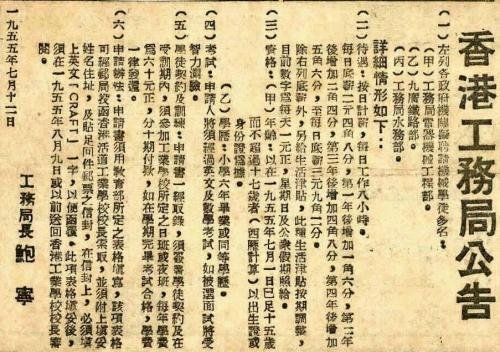 香港工務局公告
(一)左列各政府機關擬聘請機械學徒多名:
(甲)工務局電器機械工程部。
(乙)九廣鐵路部。
(丙)工務局水務部。
詳細情形如下:
(二)待遇:按日計薪,每日工作八小時。
每日底薪二元四角八分,第一年後增加一角六分,第二年
後增加二角四分,第三年後增加四角八分,第四年後增加
五角六分,至每日底薪三元九角二分。
除右列底薪外,另給生活津貼,此津貼按期調整,
目前數字爲每天一元正,星期日及公衆假期照給。
(三)資格:(甲)年齡:以在一九五五年七月一日已足十五歲
而不超過十七歲者(西曆計算)以出生證或
身份證爲據。
(乙)學歷:小學六年畢業或同等學歷。
(四)考試:申請人將須經過英文及數學考試,如被選面試將受
智力測驗。
(五)學徒契約及訓練:申請書一經取錄,須簽署學徒契約及在
受訓期內,須參加工業學校所定之日班或夜班,每年學費
爲六十元正,分十期付款,如在學期完畢考試合格,學費
一律發還。
(六)申請辦法:申請書須用教育部所定之表格填寫,該項表格
可經郵局投函香港活道工業學校校長索取,並須附上填妥
姓名住址,及貼足回件郵票之信封,在信封上,必須填
上英文「CRAFT」一字,以便函覆。此項表格填妥後,
須在一九五五年八月九日或以前送回香港工業學校校長審
閱。
工務局長 鮑寧
一九五五年七月十二日